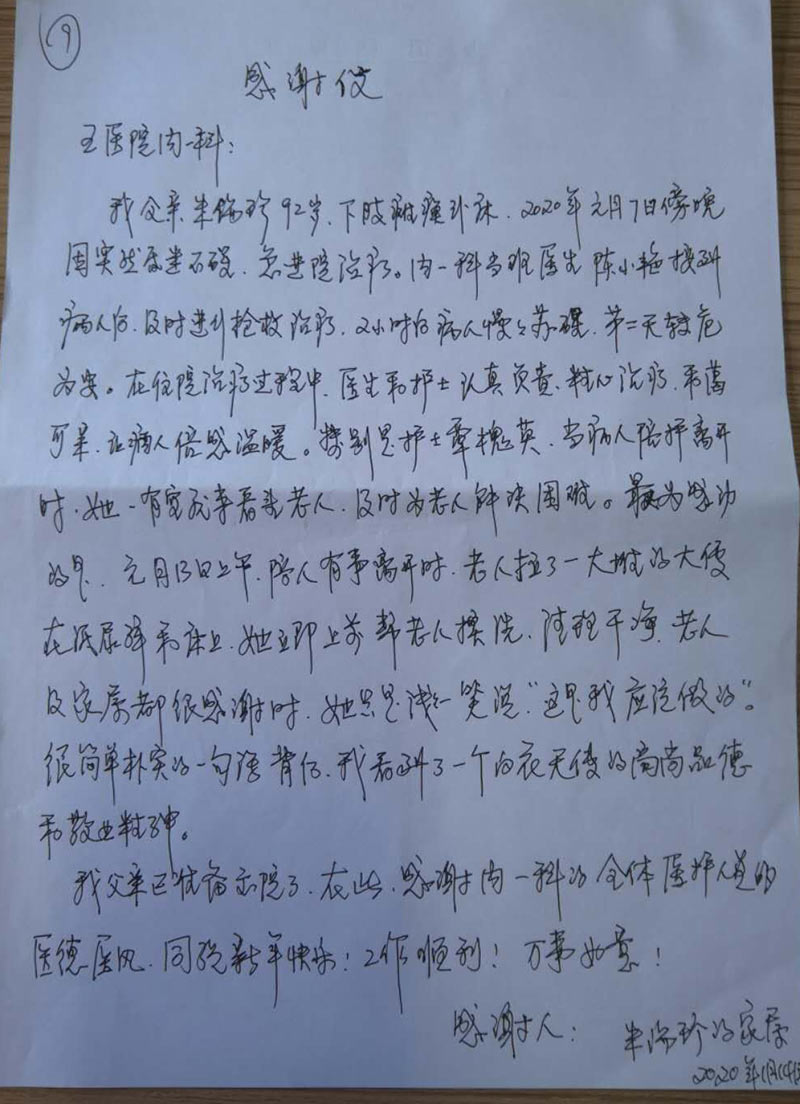 9
感谢信
医院内一科：
我父亲朱 珍92岁、下肢瘫痪卧床、2020年元月7日傍晚
因突然 、急进院治疗。内一科当班医生陈小艳接到
病人后、及时进行抢救治疗、2小时后病人慢慢苏醒、第二天转危
为安。在住院治疗过程中、医生和护士认真负责、精心治疗、和蔼
可亲、让病人倍感温暖。特别是护士覃槐英、当病人陪护离开
时、她一有空就来看望老人、及时为老人解决困难。最为感动
的是、元月13日上午、陪人有事离开时、老人拉了一大堆的大便
在纸尿裤和床上、她立即上前帮老人换洗、 干净、老人
及家属都很感谢时、她只是浅浅一笑说“这是我应该做的”。
很简单朴实的一句话背后、我看到了一个白衣天使的高尚品德
和敬业精神。
我父亲已准备出院了、在此、感谢内一科的全体医护人员的
医德医风、同祝新年快乐！工作顺利！万事如意！
感谢人： 朱 珍的家属
2020年1月14日